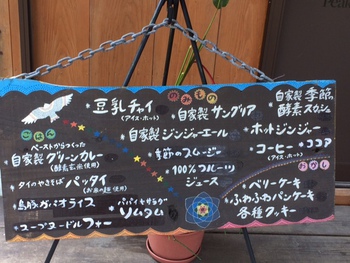 のみもの
*豆乳チャイ
(アイス・ホット)
*自家製サングリア
*自家製 季節の
酵素スカッシュ
*自家製 ジンジャーエール
*ホットジンジャー
*季節のスムージー
*コーヒー *ココア
(アイス・ホット)
*100%フルーツ
ジュース
ごはん
*ペーストからつくった
自家製グリーンカレー
(酵素玄米使用)
*タイのやきそば パッタイ
(お米の麺使用)
*鳥豚ガパオライス
*パパイヤサラダ
ソムタム
*スープヌードル フォー
おかし
*ベリーケーキ
*ふわふわパンケーキ
*各種クッキー